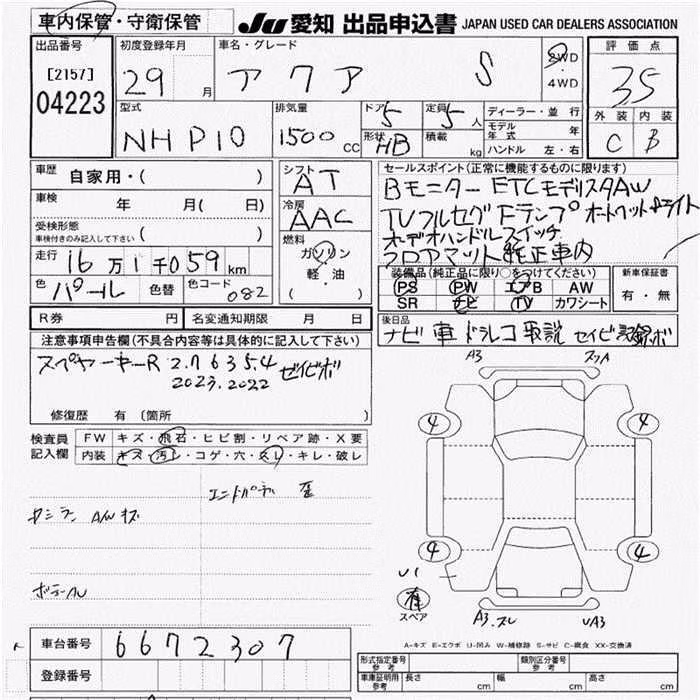 車内保管・守衛保管 JU 愛知 出品申込書 JAPAN USED CAR DEALERS ASSOCIATION
出品番号 初度登録年月 車名・グレード 評価点
[2157] 29 月 アクア S 2WD ・ 4WD 3.5
04223
型式 排気量 ドア 5 定員 5 人 ディーラー・並行 外装 内装
NHP10 1500 CC 形状 HB 積載 kg モデル年式 年 C B
ハンドル 左・右
車歴 自家用・( ) シフト AT セールスポイント(正常に機能するものに限ります)
車検 年 月( 日) 冷房 AAC Bモニター ETCモデリスタAW
受検形態 TVフルセグ Fランプ オートマット
車検付きのみ記入して下さい ( ) 燃料 オーデオハンドルスイッチ
走行 16万1千059km ガソリン フロアマット純正車内
色 パール 色替 色コード 082 軽・油 ( )
装備品(純正品に限り○をつけてください) 新車保証書
PS PW エアB AW 有・無
SR ナビ TV カワシート
R券 円 名変通知期限 月 日 後日品
ナビ 車 ドラレコ 取説 セイビ記録ボ
注意事項申告欄(不具合内容等は具体的に記入して下さい)
スペヤーキーR 2.7 6 3 5.4
2023.2022 セイビボ
修復歴 有 (箇所 )
検査員記入欄 FW キズ・飛石・ヒビ割・リペア跡・X要
内装 キズ・汚レ・コゲ・穴・スレ・キレ・破レ
A3
4 4
4 4
U1
スペア
A3.スレ UA3
AWキズ
A=キズ E=エクボ U=凹み W=補修跡 S=サビ C=腐食 XX=交換済
車台番号 6672307
登録番号
形式指定番号 参考 類別区分番号 参考
車庫証明用 参考 長さ cm 幅 cm 高さ cm